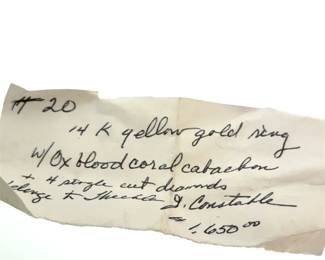 # 20
14 K yellow gold ring
w/ Ox blood coral cabachon
+ 4 single cut diamonds
to J. Constable
1,650.00